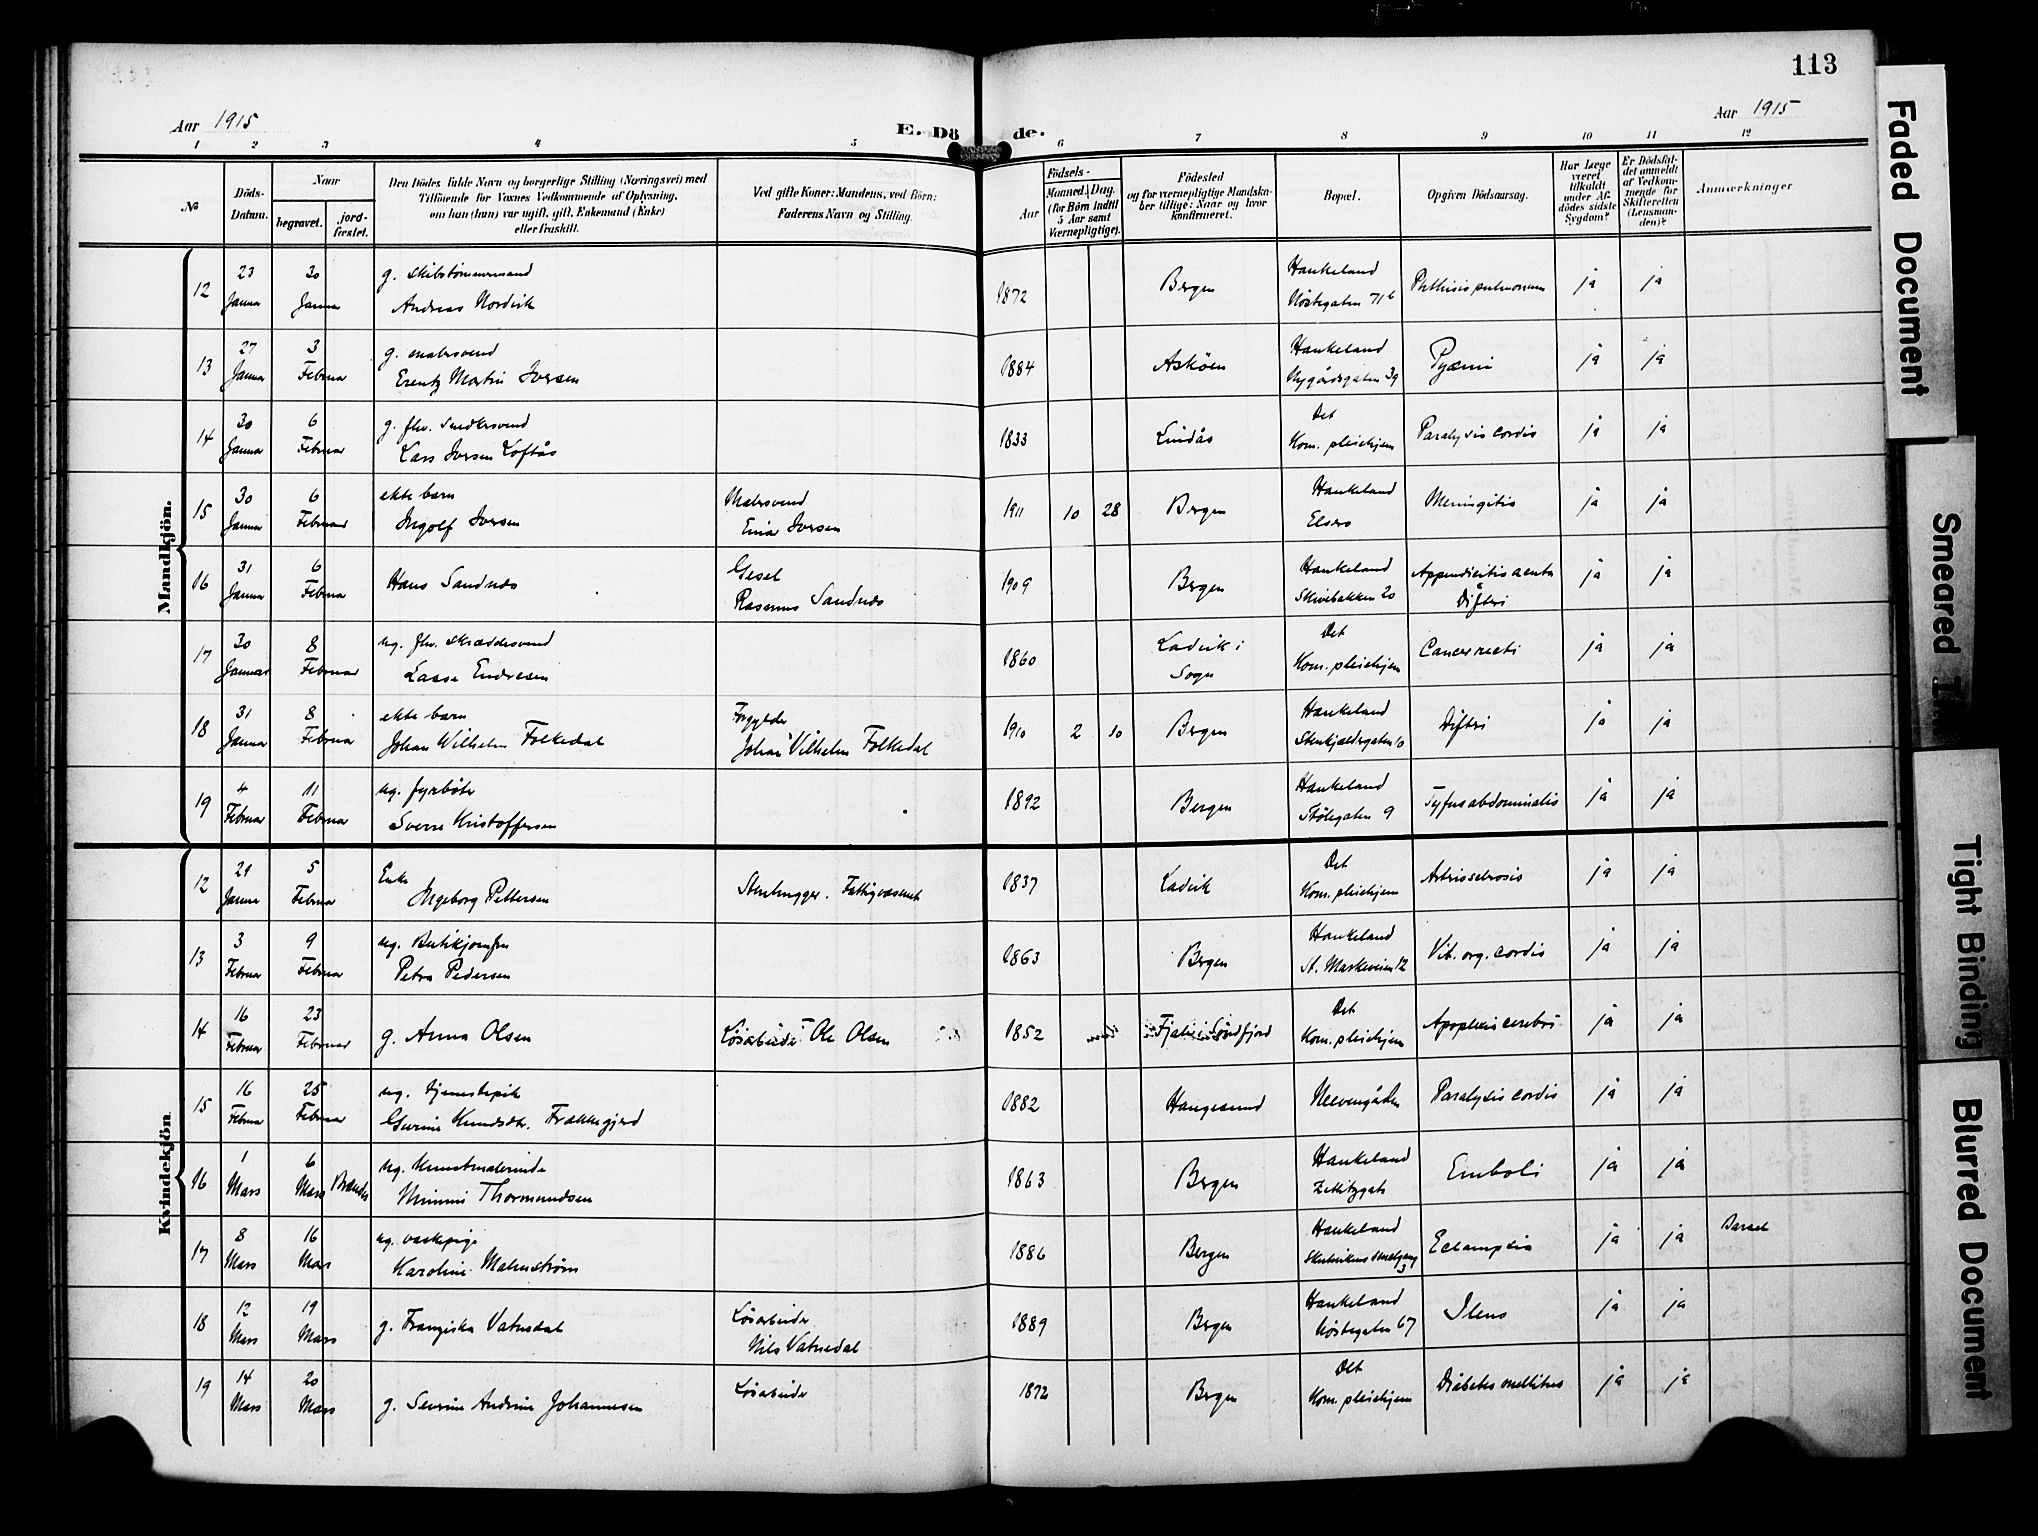 113
Aar 1915
E. Dö de.
Aar 1915
1 2 3 4 5 6 7 8 9 10 11 12
No
Döds-Datum.
Naar
begravet.
jord-fæstet.
Den Dödes fulde Navn og borgerlige Stilling (Næringsvei) med
Tilföiende for Voxnes Vedkommende af Oplysning,
om han (hun) var ugift, gift, Enkemand (Enke)
eller fraskilt.
Ved gifte Koner: Mandens, ved Börn:
Faderens Navn og Stilling.
Födsels-
Aar
Maaned. Dag.
(for Börn indtil
5 Aar samt
Værnepligtige).
Födested
og for værnepligtige Mandska-
ber tillige: Naar og hvor
konfirmeret.
Bopæl.
Opgiven Dödsaarsag.
Har Læge
været
tilkaldt
under Af-
dödes sidste
Sygdom?
Er Dödsfal-
det anmeldt
af Vedkom-
mende for
Skifteretten
(Lensman-
den)?
Anmærkninger
Mandkjön.
12 23 Januar 30 Januar g. skibstømmermand
Andreas Nordvik 1872 Bergen Haukeland Nøstegaten 71 b Phthisis pulmonum ja ja
13 27 Januar 3 Februar g. malersvend
Erentz Martin Iversen 1884 Askøen Haukeland Nygårdsgaten 39 Pyæmi ja ja
14 30 Januar 6 Februar g. fhv. snedkersvend
Lars Iversen Loftås 1833 Lindås Det Kom. pleiehjem Paralysis cordis ja ja
15 30 Januar 6 Februar ekte barn
Ingolf Iversen Malersvend Einar Iversen 1911 10 28 Bergen Haukeland Elsero Meningitis ja ja
16 31 Januar 6 Februar Hans Sandnes Gesel Rasmus Sandnes 1909 Bergen Haukeland Skivebakken 20 Appendicitis acuta Difteri ja ja
17 30 Januar 8 Februar ug. fhv. skræddersvend
Lasse Endresen 1860 Ladvik i Sogn Det Kom. pleiehjem Cancer recti ja ja
18 31 Januar 8 Februar ekte barn
Johan Wilhelm Folkedal Forgylder Johan Vilhelm Folkedal 1910 2 10 Bergen Haukeland Stenkjeldergaten 10 Difteri ja ja
19 4 Februar 11 Februar ug. fyrbøter
Sverre Kristoffersen 1892 Bergen Haukeland Stølegaten 9 Tyfus abdominalis ja ja
Kvindekjön.
12 29 Januar 5 Februar Enke
Ingeborg Pettersen Stenhugger. Fattigvæsenet 1837 Ladvik Det Kom. pleiehjem Artriosclerosis ja ja
13 3 Februar 9 Februar ug. Butikjomfru
Petra Pedersen 1863 Bergen Haukeland St. Markeveien 12 Vit. org. cordis ja ja
14 16 Februar 23 Februar g. Anna Olsen Løsarbeider Ole Olsen 1852 Fjaler i Søndfjord Det Kom. pleiehjem Apoplexis cerebri ja ja
15 16 Februar 25 Februar ug. tjenestepike
Gurine Knudsdtr. Frækkegjerd 1882 Haugesund Neevengården Paralysis cordis ja ja
16 1 Mars 6 Mars Brændes ug. Kunstmalerinde
Mimmi Thormundsen 1863 Bergen Haukeland Zetlitzgate Emboli ja ja
17 8 Mars 16 Mars ug. vaskepige
Karoline Malmstrøm 1886 Bergen Haukeland Skuteviksens smalgang 3 Eclampsia ja ja Barsel
18 12 Mars 19 Mars g. Franziska Vatnedal Løsarbeider Nils Vatnedal 1889 Bergen Haukeland Nøstegaten 67 Ileus ja ja
19 14 Mars 20 Mars g. Severine Andrine Johannesen Løsarbeider 1872 Bergen Det Kom. pleiehjem Diabetes mellitus ja ja
Faded Document
Smeared
Tight Binding
Blurred Document